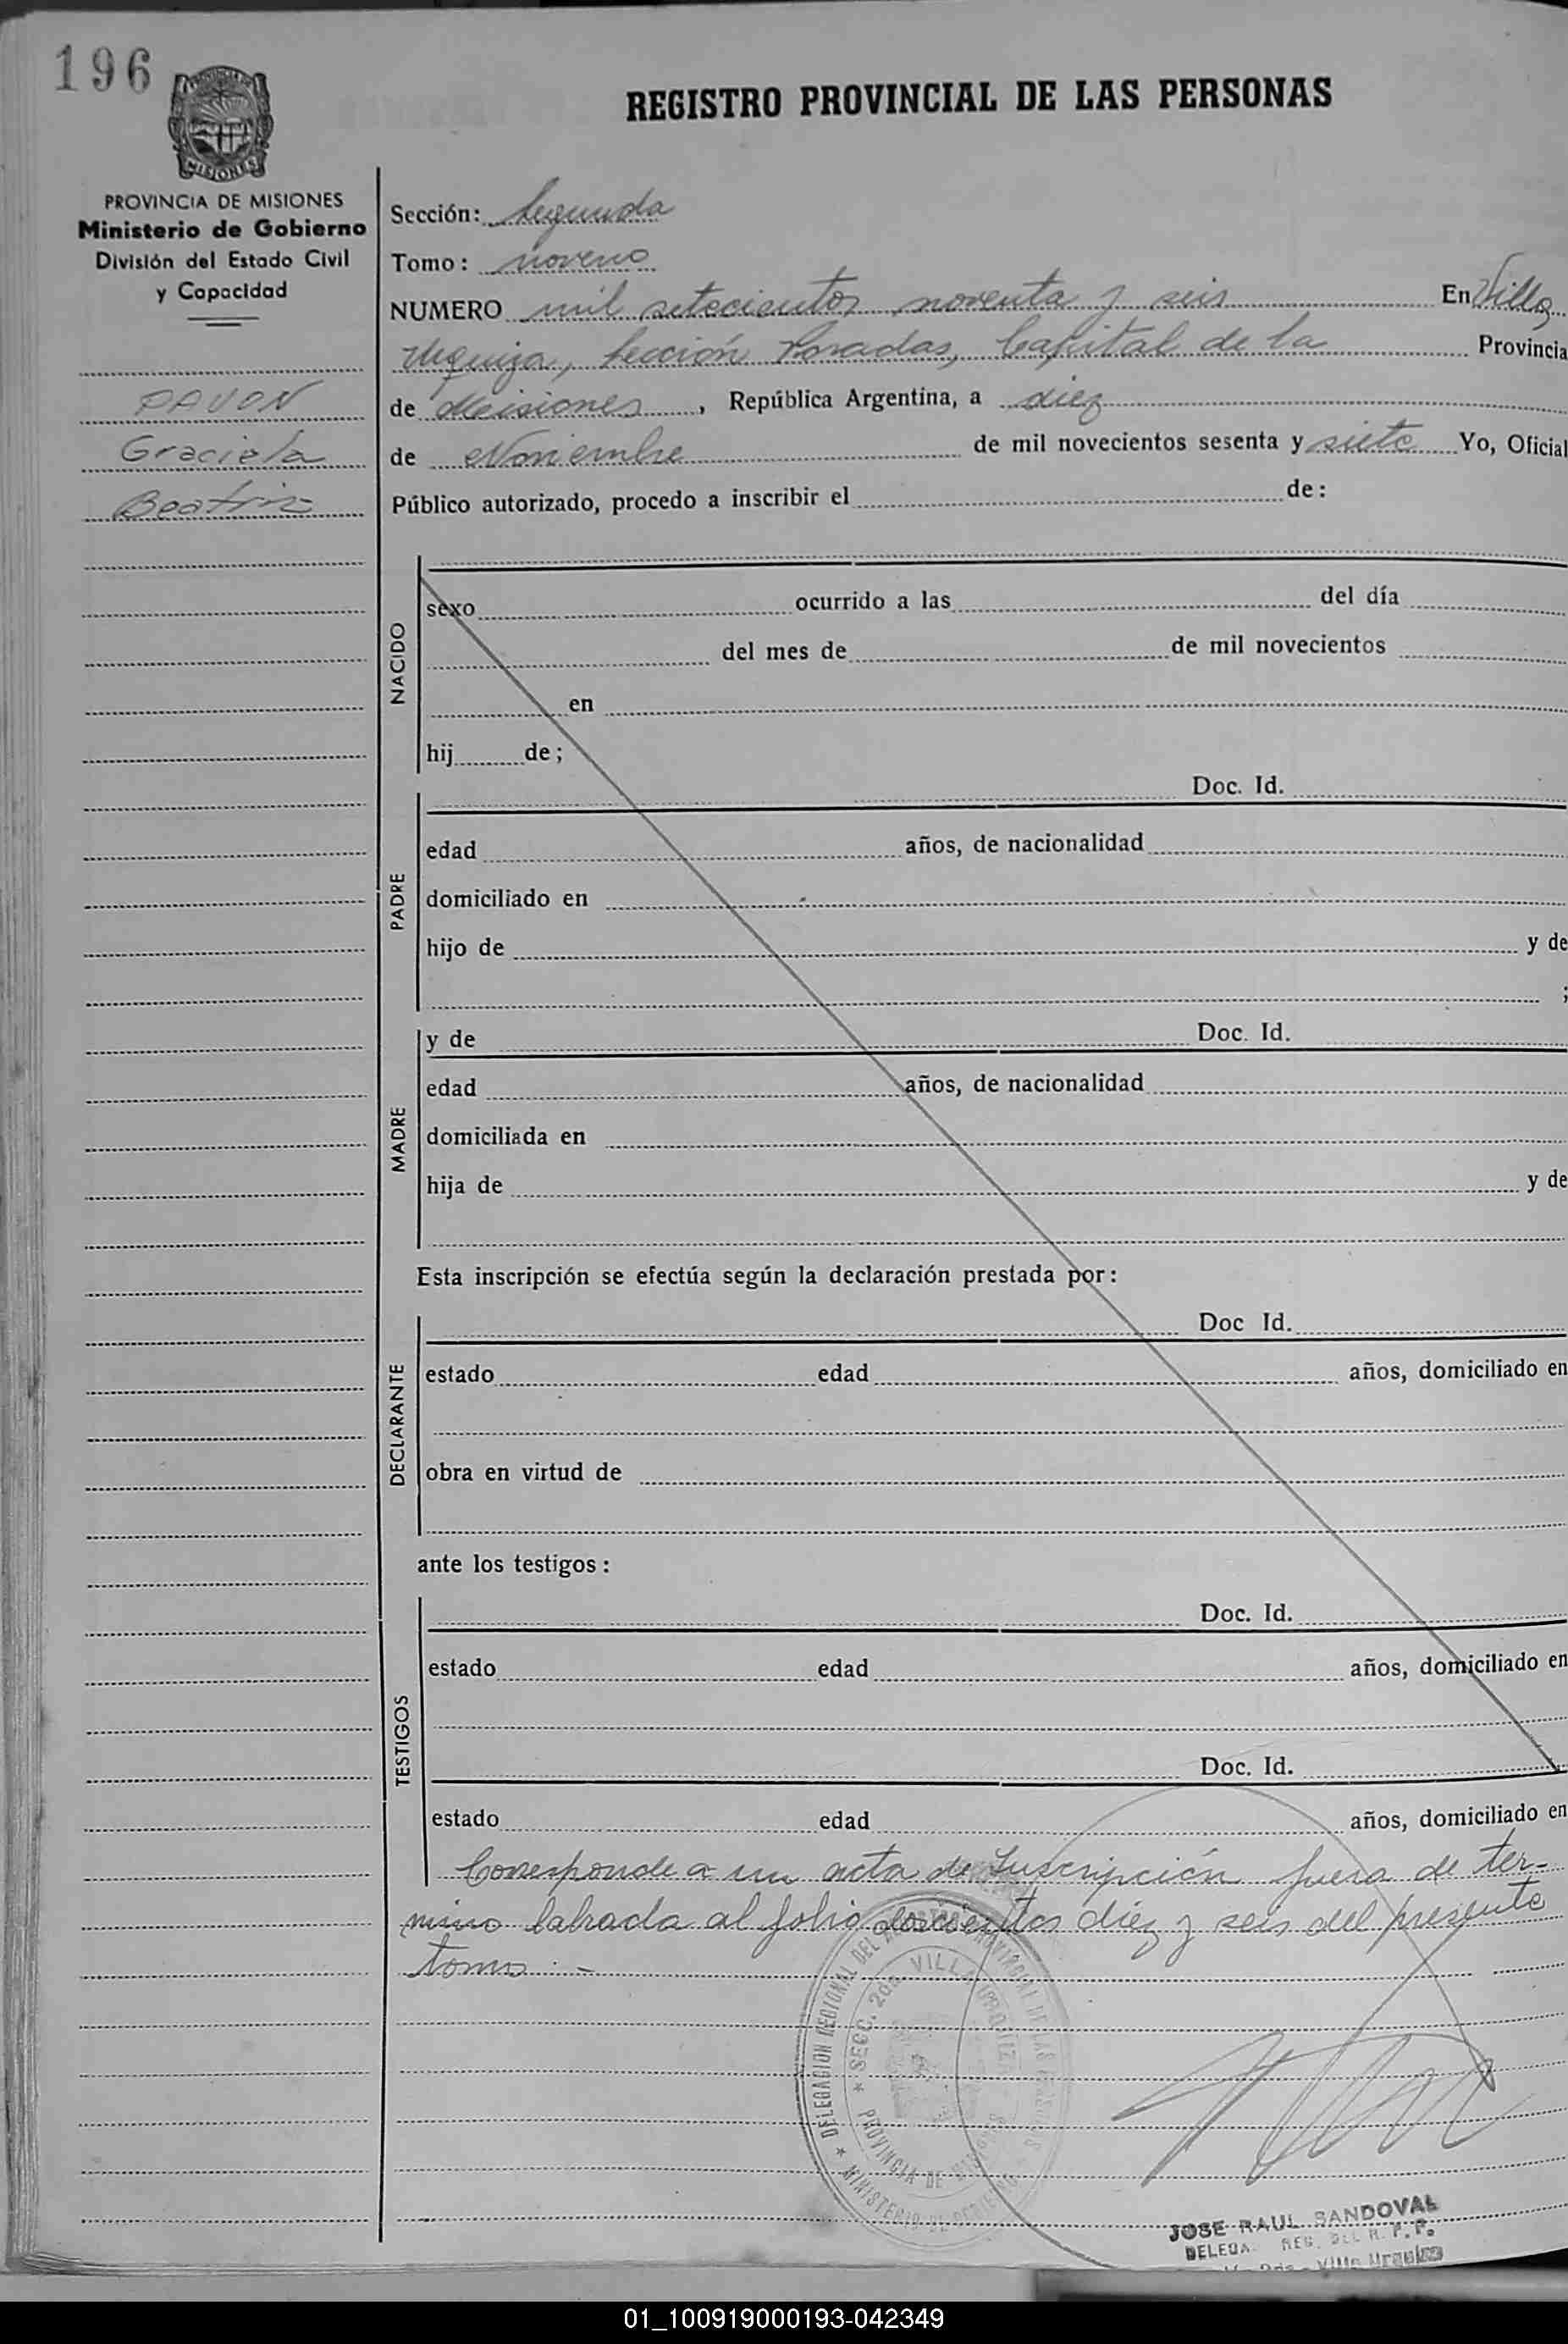 196
REGISTRO PROVINCIAL DE LAS PERSONAS
MISIONES
PROVINCIA DE MISIONES
Ministerio de Gobierno
División del Estado Civil
y Capacidad
PAVON
Graciela
Beatriz
Sección: Segunda
Tomo: noveno
NUMERO mil setecientos noventa y seis En Villa
Urquiza, Sección Posadas, Capital de la Provincia
de Misiones, República Argentina, a diez
de Noviembre de mil novecientos sesenta y siete Yo, Oficial
Público autorizado, procedo a inscribir el de:
NACIDO
sexo ocurrido a las del día
del mes de de mil novecientos
en
hij de;
PADRE
Doc. Id.
edad años, de nacionalidad
domiciliado en
hijo de y de
;
MADRE
y de Doc. Id.
edad años, de nacionalidad
domiciliada en
hija de y de
Esta inscripción se efectúa según la declaración prestada por:
DECLARANTE
Doc Id.
estado edad años, domiciliado en
obra en virtud de
ante los testigos:
TESTIGOS
Doc. Id.
estado edad años, domiciliado en
Doc. Id.
estado edad años, domiciliado en
Corresponde a un acta de Inscripción fuera de ter-
mino labrada al folio doscientos diez y seis del presente
tomo.-
DELEGACION REGIONAL DEL REGISTRO PROVINCIAL DE LAS PERSONAS
SECC. 2da. VILLA URQUIZA
PROVINCIA DE MISIONES
MINISTERIO DE GOBIERNO
JOSE RAUL SANDOVAL
DELEGA. REG. DEL R. P. P.
2da - Villa Urquiza
01_100919000193-042349